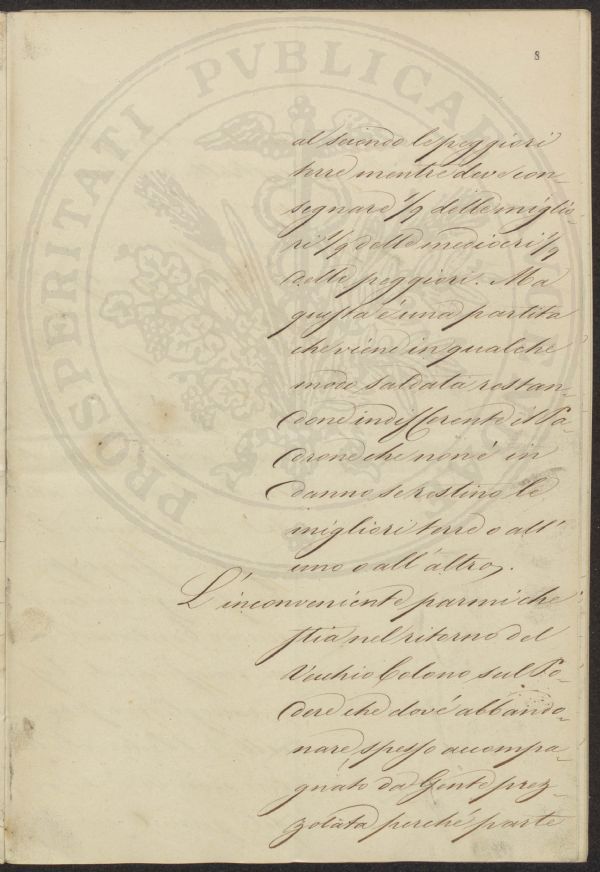 8
al secondo le peggiori
terre mentre deve con-
segnare 1/9 delle miglio-
ri 1/9 delle mediocri 1/9
delle peggiori. Ma
questa è una partita
che viene in qualche
modo saldata restan-
done indifferente il Pa-
drone che non è in
danno se restino le
migliori terre o all'
uno o all'altro.
L'inconveniente parmi che
stia nel ritorno del
Vecchio Colono sul Po-
dere che dové abbando-
nare, spesso accompa-
gnato da Gente prez-
zolata perché parte
PROSPERITATI PVBLICAE